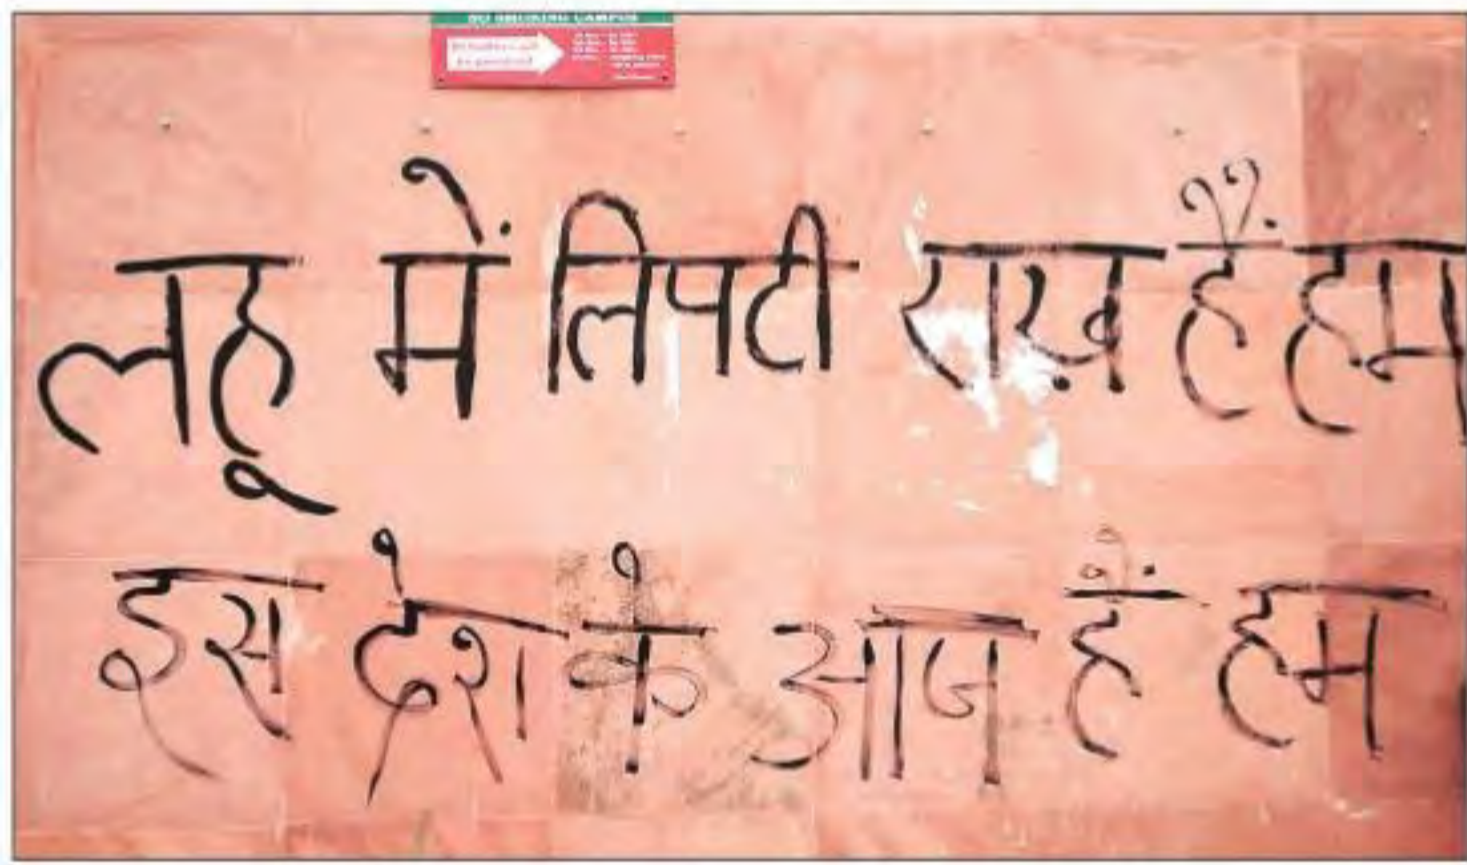 NO SMOKING CAMPUS
लहू में लिपटी राख़ हैं हम
इस देश के आज हैं हम